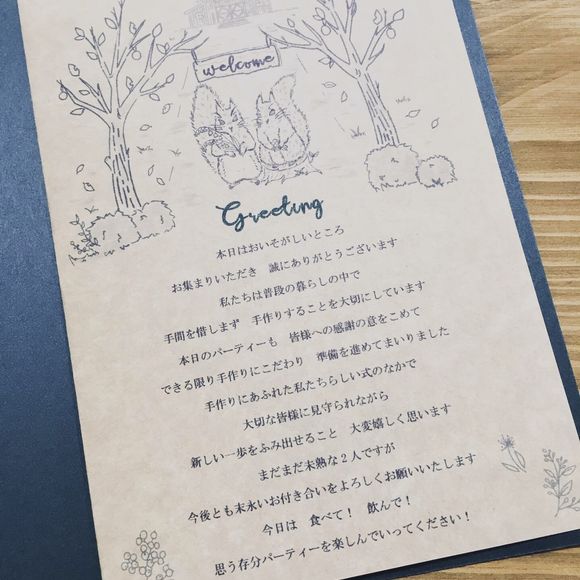 welcome
Greeting
本日はおいそがしいところ
お集まりいただき　誠にありがとうございます
私たちは普段の暮らしの中で
手間を惜しまず　手作りすることを大切にしています
本日のパーティーも　皆様への感謝の意をこめて
できる限り手作りにこだわり　準備を進めてまいりました
手作りにあふれた私たちらしい式のなかで
大切な皆様に見守られながら
新しい一歩をふみ出せること　大変嬉しく思います
まだまだ未熟な２人ですが
今後とも末永いお付き合いをよろしくお願いいたします
今日は　食べて！　飲んで！
思う存分パーティーを楽しんでいってください！